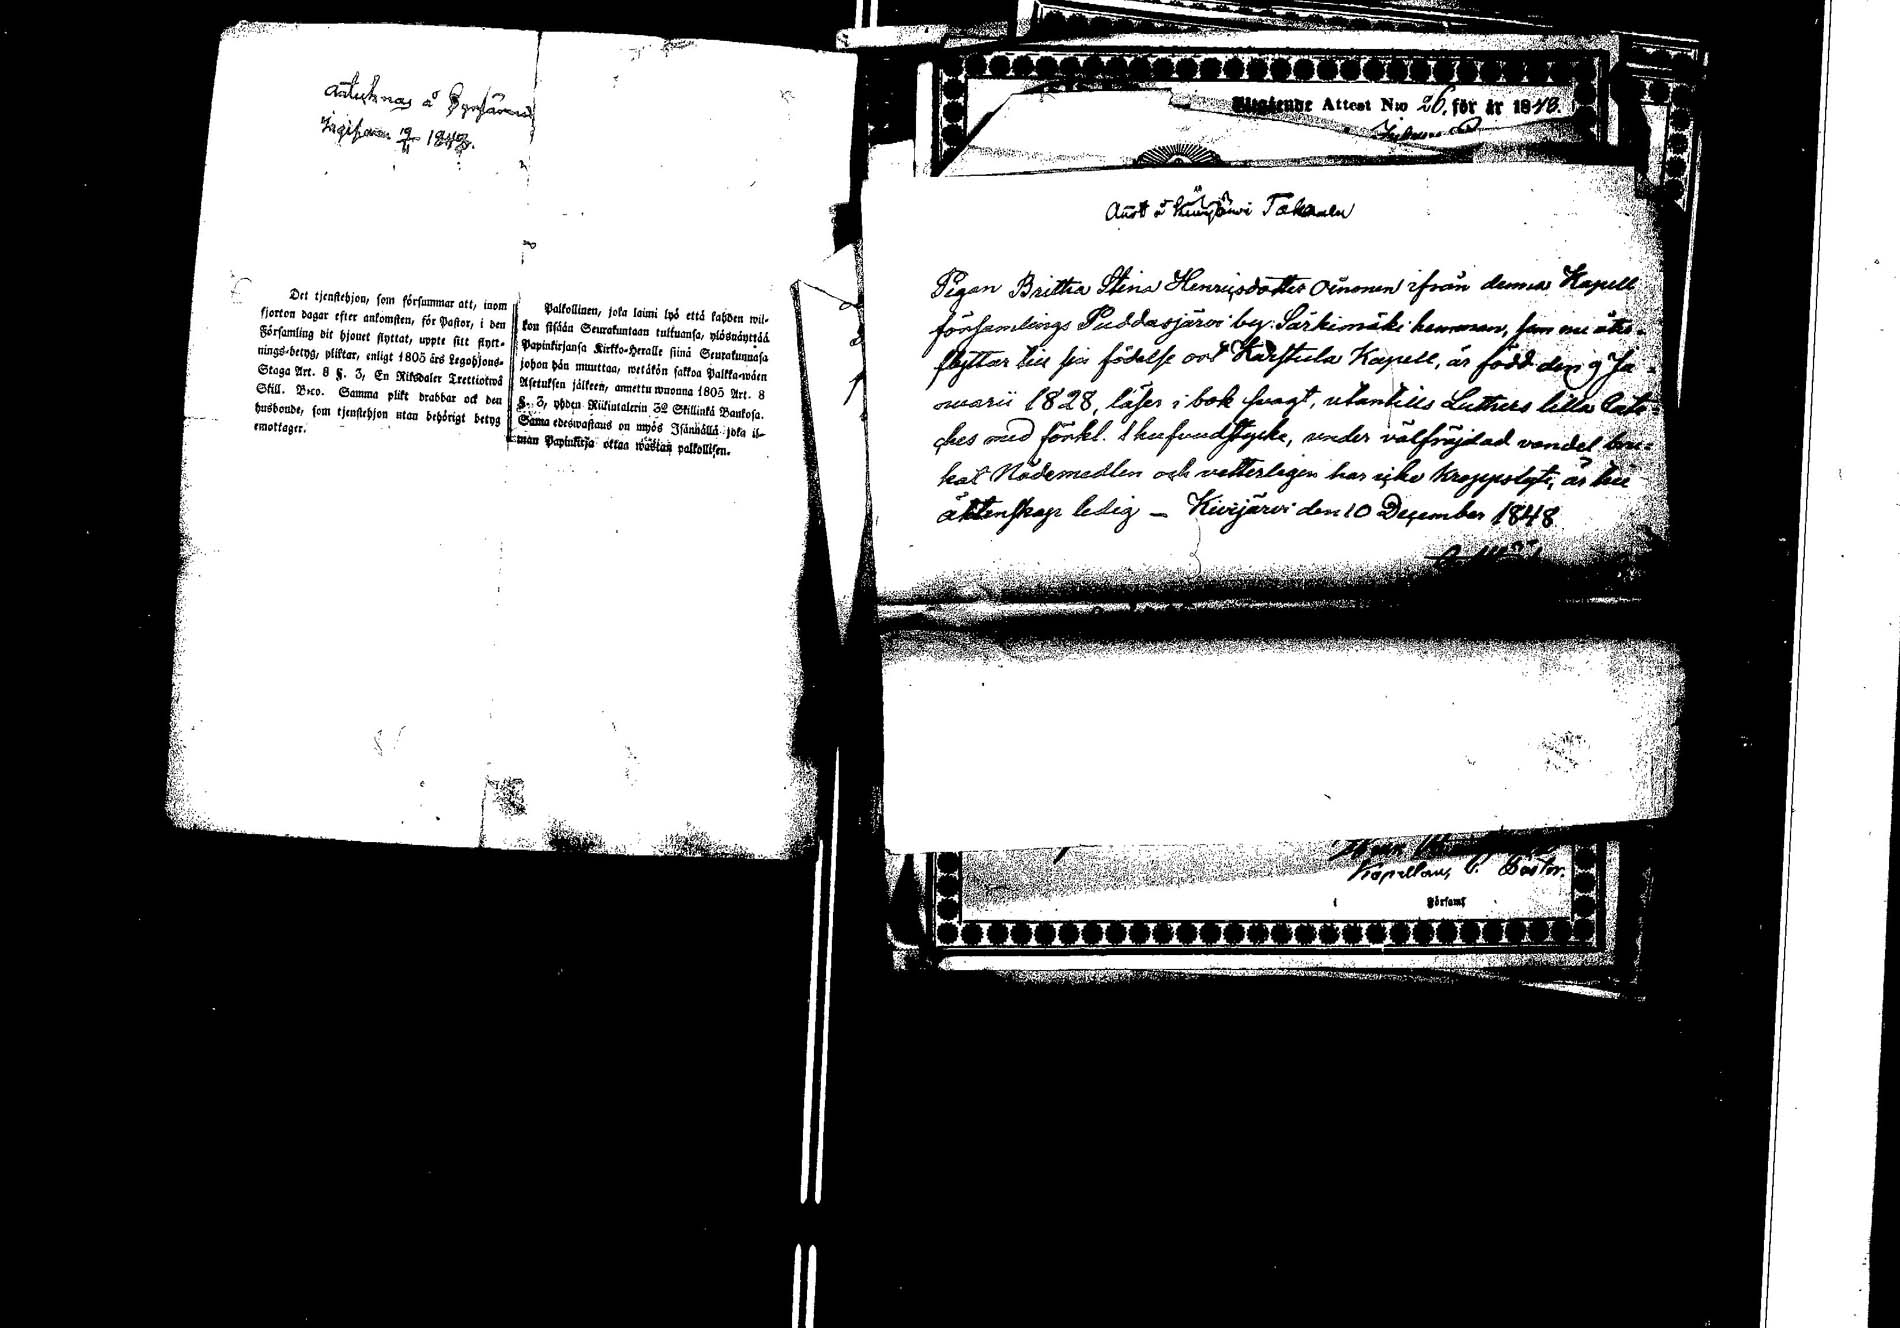 å
19/11 1848.
Det tjenstehjon, som försummar att, inom
fjorton dagar efter ankomsten, för Pastor, i den
Församling dit hjonet flyttat, uppte sitt flytt-
nings-betyg, pliktar, enligt 1805 års Legohjons-
Staga Art. 8 §. 3, En Riksdaler Trettiotwå
Skill. B:co. Samma plikt drabbar ock den
husbonde, som tjenstehjon utan behörigt betyg
emottager.
Palkollinen, joka laimi lyö että kahden wii-
kon sisään Seurakuntaan tultuansa, ylösnäyttää
Papinkirjansa Kirkko-Herralle siinä Seurakunnasa
johon hän muuttaa, wetäkön sakkoa Palkka-wäen
Asetuksen jälkeen, annettu wuonna 1805 Art. 8
§. 3, yhden Riikintalerin 32 Skillinkiä Bankosa.
Sama edeswastaus on myös Isännällä joka il-
man Papinkirja ottaa wastan palkollisen.
Utgående Attest N:o 26, för år 1848.
å Takanen
Pigan Britha Stina Henricsdotter Oinonen ifrån denna Kapell
församlings Puddasjärvi by. Särkimäki hemman, som nu åter-
flyttar till sin födelse ort Karstula Kapell, är född den 9 Ja-
nuarii 1828, läser i bok svagt, utantills Luthers lilla Cate-
ches med förkl. 1 hufvudstycke, under välfräjdad vandel bru-
kat Nådemedlen och vetterligen har icke kroppslyte, är till
äktenskap ledig — Kivijärvi den 10 December 1848
Kapellan, v. Pastor.
Församl